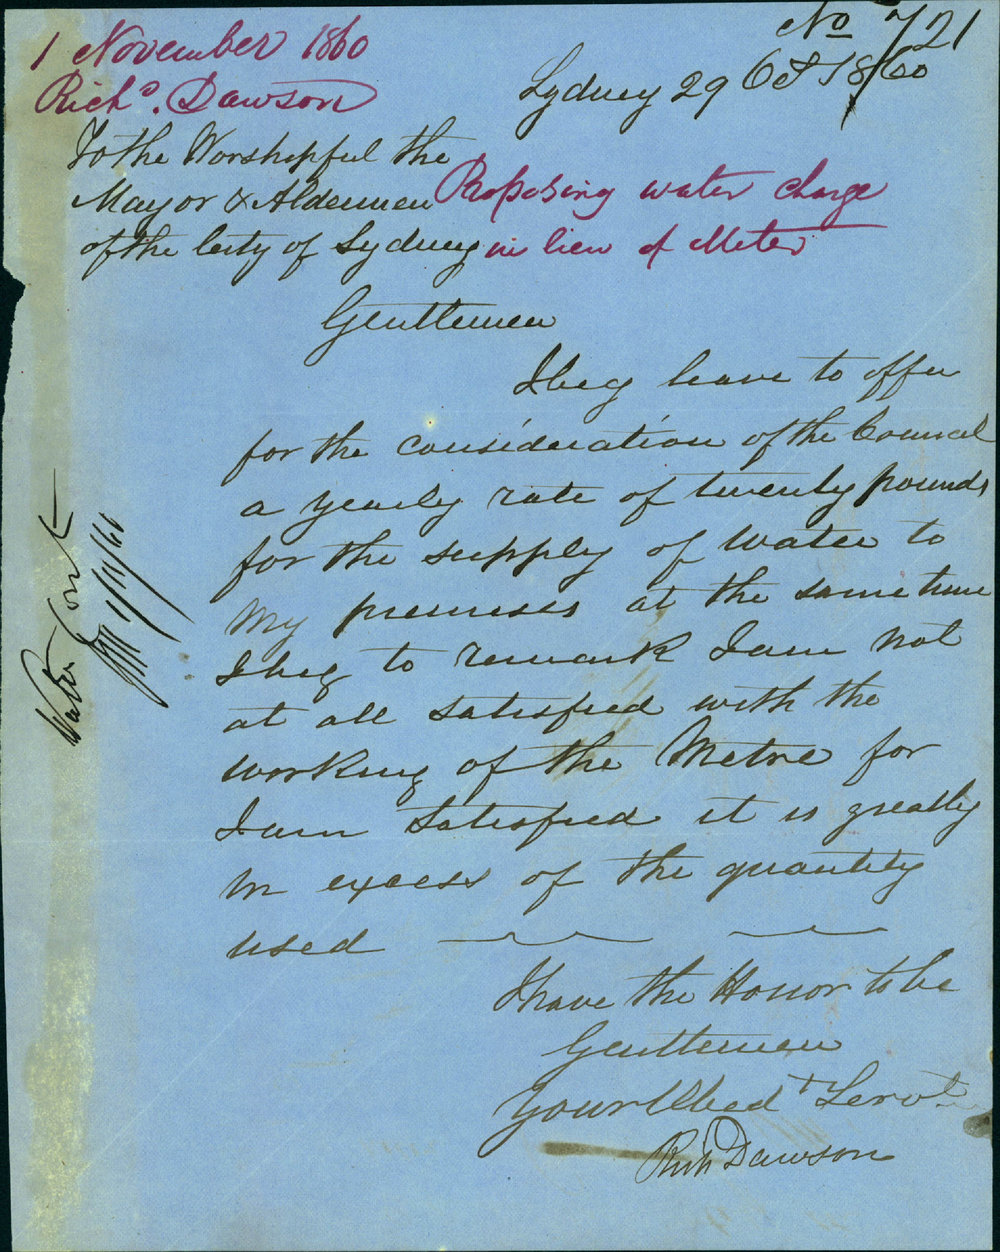 No 721
1 November 1860
Richd. Dawson
Sydney 29 Oct 1860
To the Worshipful the
Mayor & Aldermen
of the City of Sydney
Proposing water charge
in lieu of Meter
Gentlemen
I beg leave to offer
for the consideration of the Council
a yearly rate of twenty pounds
for the supply of Water to
My premises at the same time
I beg to remark I am not
at all satisfied with the
working of the Metre for
I am Satisfied it is greatly
in excess of the quantity
used
I have the Honor to be
Gentlemen
Your Obedt Servt
Richd Dawson
Water Comt
1/11/60